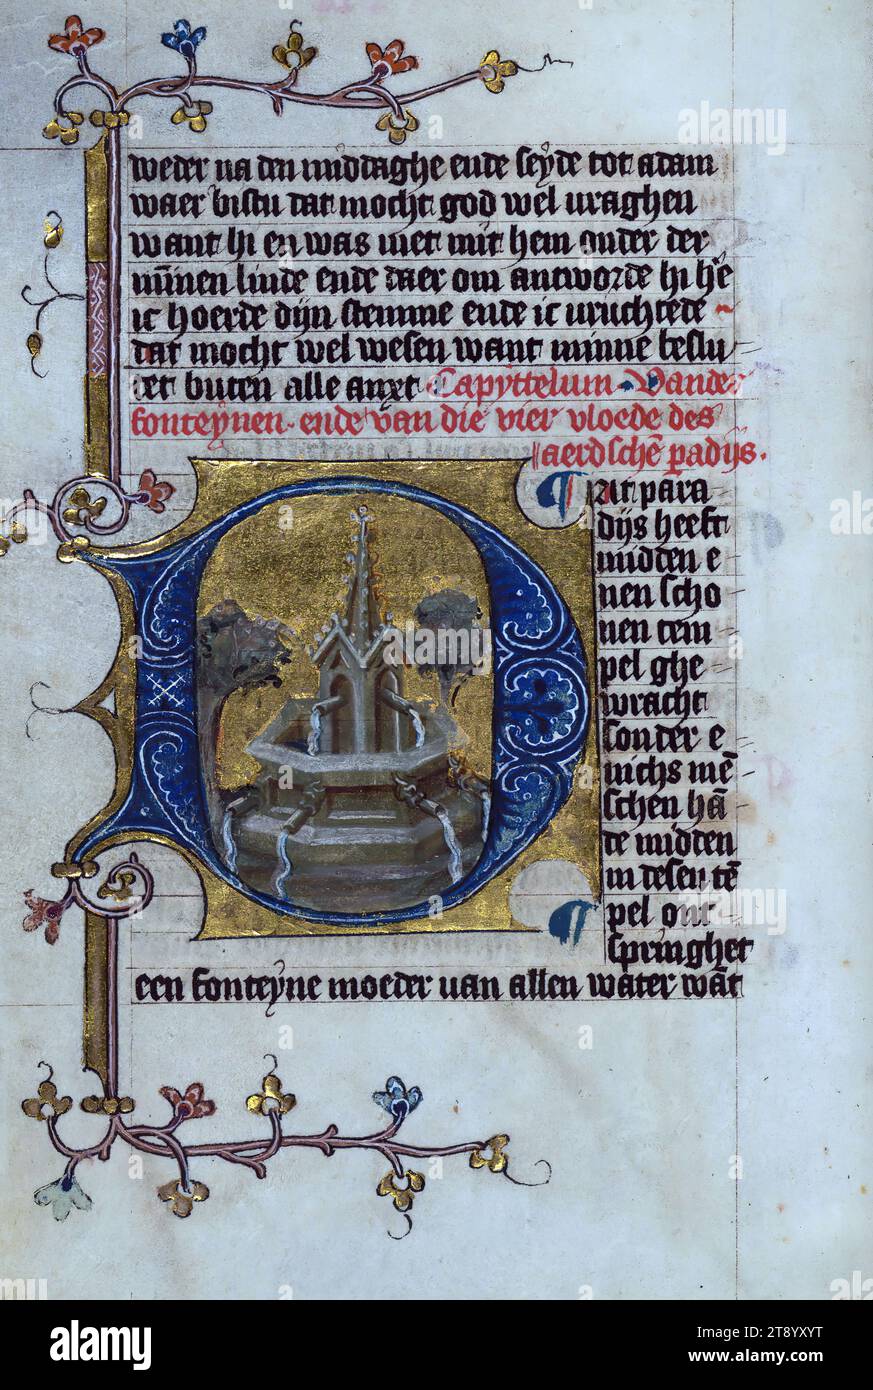 weder na den middaghe ende seyde tot adam
waer bistu dat mocht god wel vraghen
want hi en was niet mit hem onder der
minnen linde ende daer om antworde hi hē
ic hoerde dijn stemme ende ic vruchtede
dat mocht wel wesen want minne beslu
tet buten alle anxt Capyttelum. Vande
fonteynen. ende van die vier vloede des
aerdschē padijs.
D
it para
dijs heeft
midden e
nen scho
nen tem
pel ghe
wracht
sonder e
nichs mē
schen hā
de midden
in desen tē
pel ont
springhet
een fonteyne moeder van allen water wāt
alamy
Image ID: 2T8YXYT
www.alamy.com